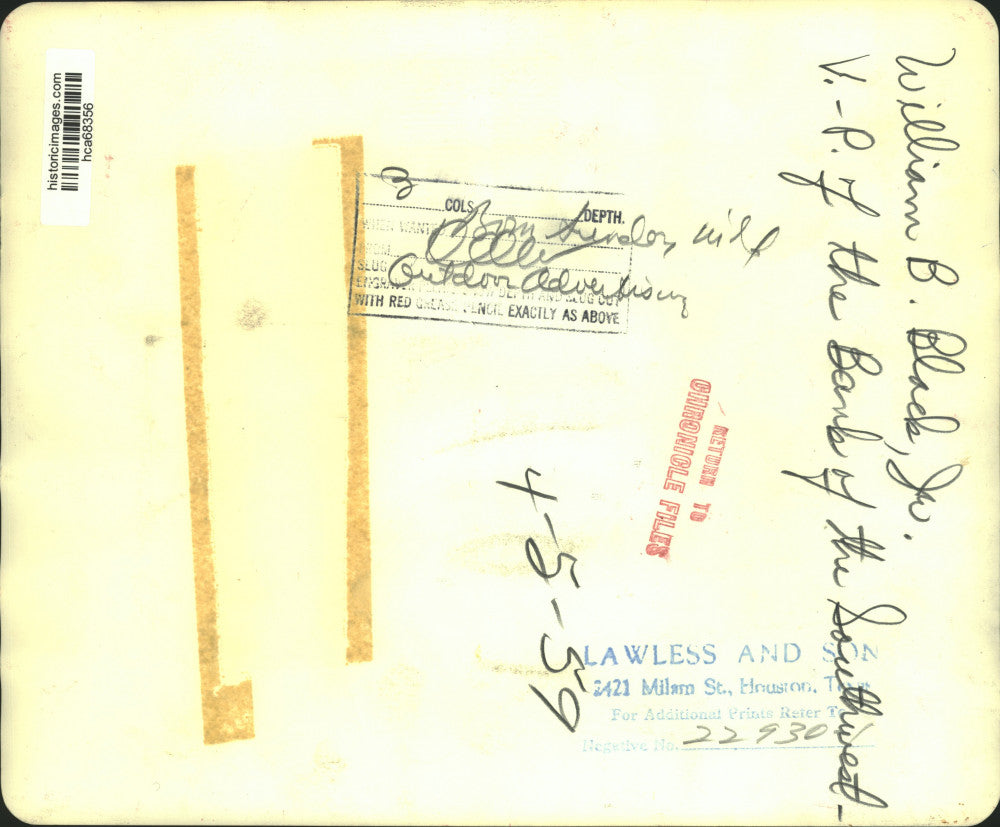 William B. Black, Jr.
V.-P. of the Bank of the Southwest-
historicimages.com
hca68356
COLS. DEPTH.
WHEN WANT
Sunday
SLUG
Outdoor Advertising
DEPTH AND SLUG OUT
WITH RED GREASE PENCIL EXACTLY AS ABOVE
RETURN TO
CHRONICLE FILES
4-5-59
LAWLESS AND SON
2421 Milam St., Houston, Texas
For Additional Prints Refer To
Negative No. 22930